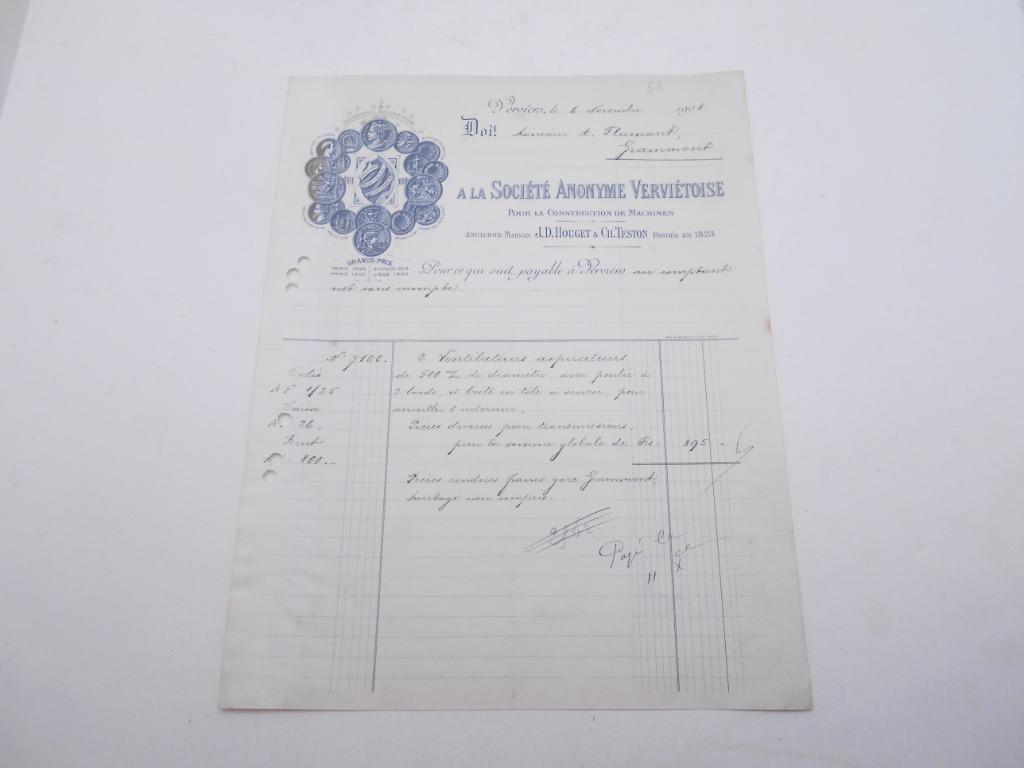 Verviers, le 6 Novembre 1908.
Doit Monsieur A. Flamant,
Grammont
A LA SOCIÉTÉ ANONYME VERVIÉTOISE
POUR LA CONSTRUCTION DE MACHINES
ANCIENNE MAISON J.D. HOUGET & CH. TESTON FONDÉE EN 1823
GRANDS PRIX
PARIS 1889 ST LOUIS 1904
PARIS 1900 LIÈGE 1905
Pour ce qui suit, payable à Verviers au comptant
net sans escompte.
N° 7100. 2 Ventilateurs aspirateurs
Colis de 500 m/m de diamètre, avec poulie à
A F 1/25 2 bords, et boîte en tôle à ouvrir, pour
Caisse l'intérieur,
A. 26. Pièces diverses pour transmissions,
Brut pour la somme globale de Frs: 895 -
K. 800.-
Pièces rendues franco gare Grammont,
montage non compris.
Payé le
11